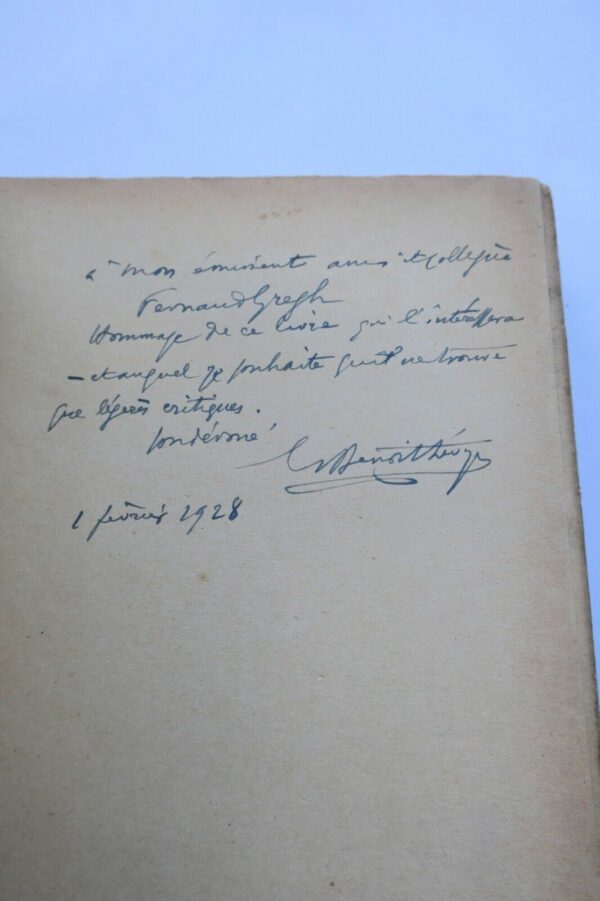 à mon éminent ami et collègue
Fernand Gregh
Hommage de ce livre qui l'intéressera
— et auquel je souhaite qu'il ne trouve
que légères critiques.
son dévoué
G Benoit Lévy
1 février 1928